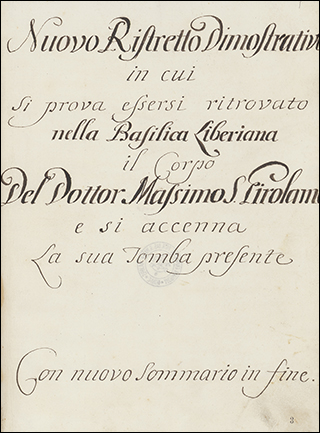 Nuovo Ristretto Dimostrativo
in cui
si prova essersi ritrovato
nella Basilica Liberiana
il Corpo
Del Dottor Massimo S. Girolamo
e si accenna
La sua Tomba presente
Con nuovo Sommario in fine.